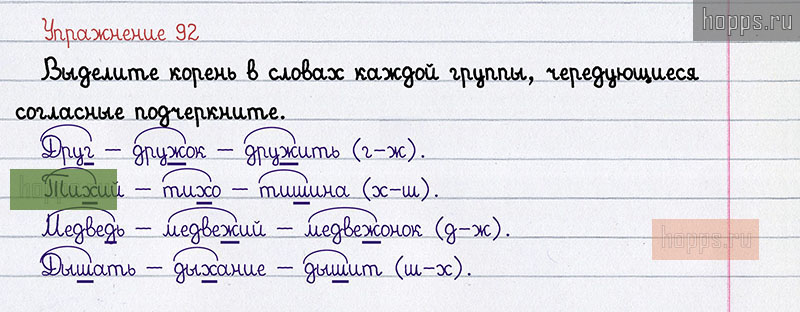 hopps.ru
Упражнение 92
Выделите корень в словах каждой группы, чередующиеся
согласные подчеркните.
Друг – дружок – дружить (г-ж).
Тихий – тихо – тишина (х-ш).
Медведь – медвежий – медвежонок (д-ж).
hopps.ru
Дышать – дыхание – дышит (ш-х).